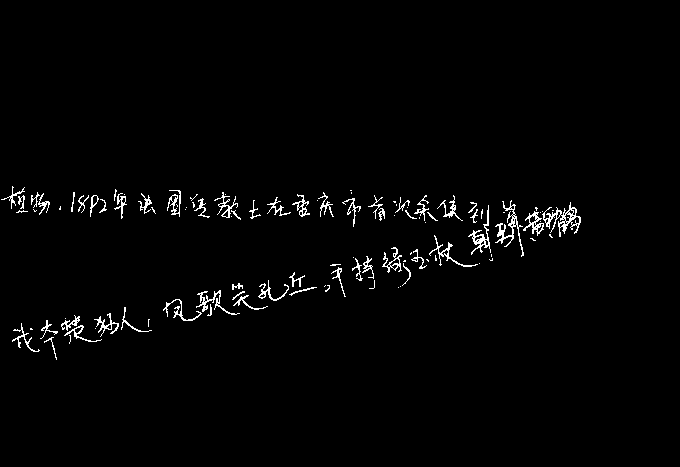 植物,1892年法国传教士在重庆市首次采集到
我本楚狂人,凤歌笑孔丘,手持绿玉杖,朝别黄鹤